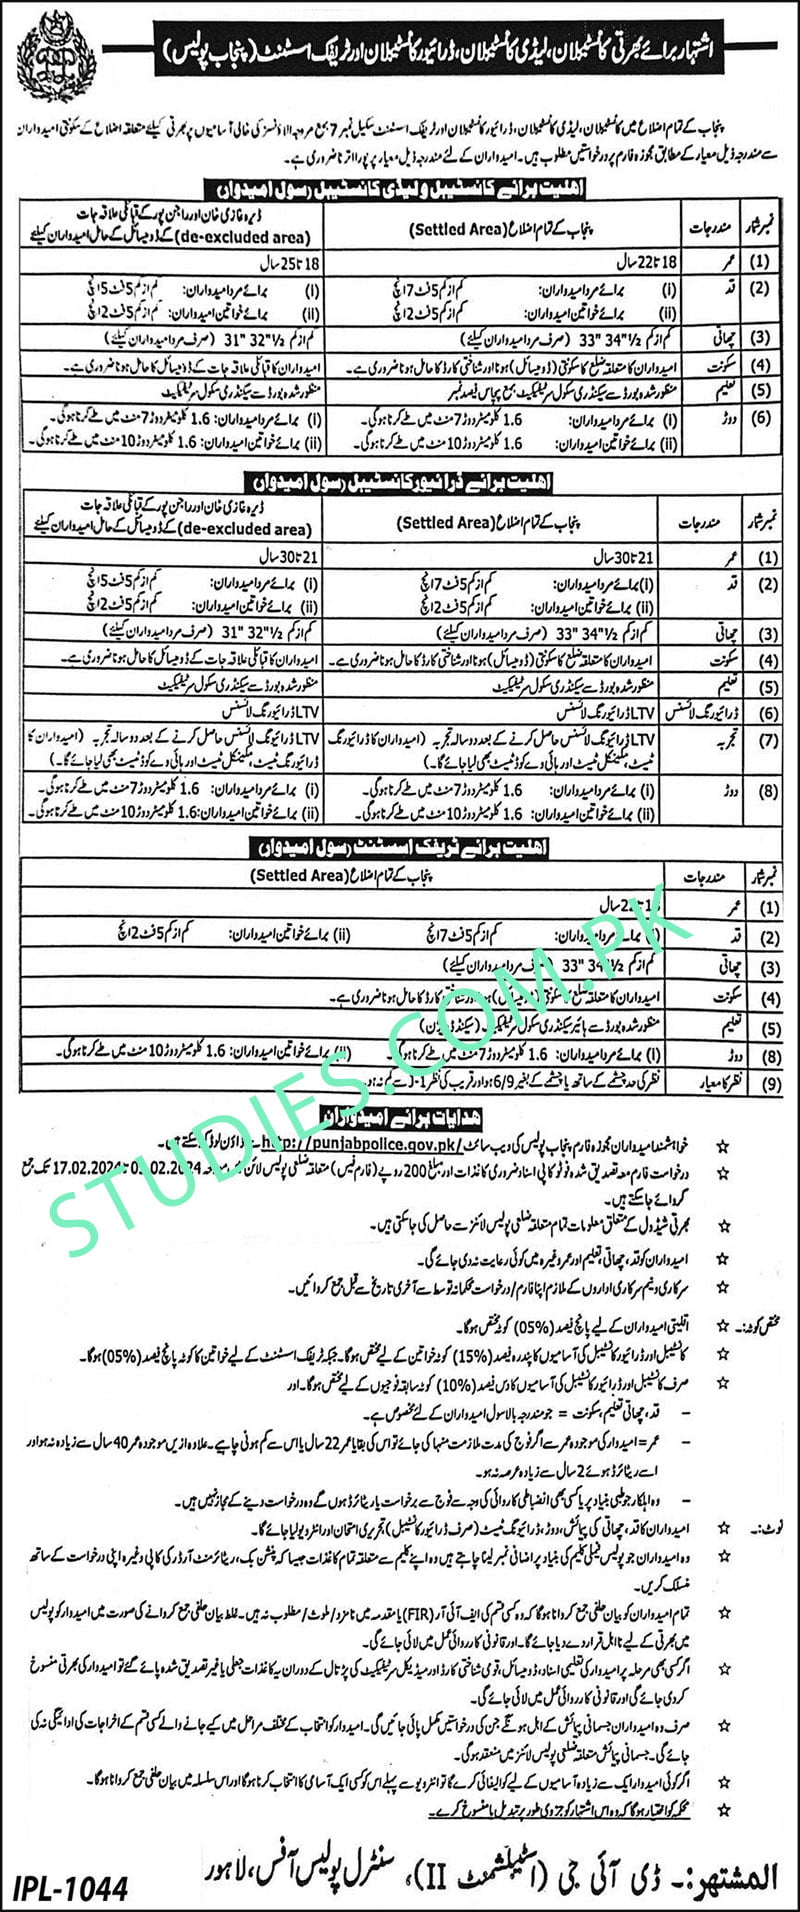 اشتہار برائے بھرتی کانسٹیبلان، لیڈی کانسٹیبلان، ڈرائیور کانسٹیبلان اور ٹریفک اسسٹنٹ (پنجاب پولیس)
پنجاب کے تمام اضلاع میں کانسٹیبلان، لیڈی کانسٹیبلان، ڈرائیور کانسٹیبلان اور ٹریفک اسسٹنٹ سکیل نمبر 7 بمع مروجہ الاؤنسز کی خالی آسامیوں پر بھرتی کیلئے متعلقہ اضلاع کے سکونتی امیدواران
سے مندرجہ ذیل معیار کے مطابق مجوزہ فارم پر درخواستیں مطلوب ہیں۔ امیدواران کے لئے مندرجہ ذیل معیار پر پورا اترنا ضروری ہے۔
اہلیت برائے کانسٹیبل و لیڈی کانسٹیبل (سول امیدوار)
نمبر شمار مندرجات پنجاب کے تمام اضلاع (Settled Area) ڈیرہ غازی خان اور راجن پور کے قبائلی علاقہ جات
(de-excluded area) کے ڈومیسائل کے حامل امیدواران کیلئے
(1) عمر 18 تا 22 سال 18 تا 25 سال
(2) قد (i) برائے مرد امیدواران: کم از کم 5 فٹ 7 انچ (i) برائے مرد امیدواران: کم از کم 5 فٹ 5 انچ
(ii) برائے خواتین امیدواران: کم از کم 5 فٹ 2 انچ (ii) برائے خواتین امیدواران: کم از کم 5 فٹ 2 انچ
(3) چھاتی کم از کم 33" 34½" (صرف مرد امیدواران کیلئے) 31" 32½" (صرف مرد امیدواران کیلئے)
(4) سکونت امیدواران کا متعلقہ ضلع کا سکونتی (ڈومیسائل) ہونا اور شناختی کارڈ کا حامل ہونا ضروری ہے۔ امیدواران کا قبائلی علاقہ جات کے ڈومیسائل کا حامل ہونا ضروری ہے۔
(5) تعلیم منظور شدہ بورڈ سے سیکنڈری سکول سرٹیفکیٹ بمع پچاس فیصد نمبر منظور شدہ بورڈ سے سیکنڈری سکول سرٹیفکیٹ
(6) دوڑ (i) 1.6 کلومیٹر دوڑ 7 منٹ میں طے کرنا ہوگی۔ (i) برائے مرد امیدواران: 1.6 کلومیٹر دوڑ 7 منٹ میں طے کرنا ہوگی۔
(ii) 1.6 کلومیٹر دوڑ 10 منٹ میں طے کرنا ہوگی۔ (ii) برائے خواتین امیدواران: 1.6 کلومیٹر دوڑ 10 منٹ میں طے کرنا ہوگی۔
اہلیت برائے ڈرائیور کانسٹیبل (سول امیدوار)
نمبر شمار مندرجات پنجاب کے تمام اضلاع (Settled Area) ڈیرہ غازی خان اور راجن پور کے قبائلی علاقہ جات
(de-excluded area) کے ڈومیسائل کے حامل امیدواران کیلئے
(1) عمر 21 تا 30 سال 21 تا 30 سال
(2) قد (i) برائے مرد امیدواران: کم از کم 5 فٹ 7 انچ (i) برائے مرد امیدواران: کم از کم 5 فٹ 5 انچ
(ii) برائے خواتین امیدواران: کم از کم 5 فٹ 2 انچ (ii) برائے خواتین امیدواران: کم از کم 5 فٹ 2 انچ
(3) چھاتی کم از کم 33" 34½" (صرف مرد امیدواران کیلئے) کم از کم 31" 32½" (صرف مرد امیدواران کیلئے)
(4) سکونت امیدواران کا متعلقہ ضلع کا سکونتی (ڈومیسائل) ہونا اور شناختی کارڈ کا حامل ہونا ضروری ہے۔ امیدواران کا قبائلی علاقہ جات کے ڈومیسائل کا حامل ہونا ضروری ہے۔
(5) تعلیم منظور شدہ بورڈ سے سیکنڈری سکول سرٹیفکیٹ منظور شدہ بورڈ سے سیکنڈری سکول سرٹیفکیٹ
(6) ڈرائیونگ لائسنس LTV ڈرائیونگ لائسنس LTV ڈرائیونگ لائسنس
(7) تجربہ LTV ڈرائیونگ لائسنس حاصل کرنے کے بعد دو سالہ تجربہ (امیدواران کا ڈرائیونگ LTV ڈرائیونگ لائسنس حاصل کرنے کے بعد دو سالہ تجربہ (امیدواران کا
ٹیسٹ، مکینیکل ٹیسٹ اور ہائی وے کوڈ ٹیسٹ بھی لیا جائے گا)۔ ڈرائیونگ ٹیسٹ، مکینیکل ٹیسٹ اور ہائی وے کوڈ ٹیسٹ بھی لیا جائے گا)۔
(8) دوڑ (i) 1.6 کلومیٹر دوڑ 7 منٹ میں طے کرنا ہوگی۔ (i) برائے مرد امیدواران: 1.6 کلومیٹر دوڑ 7 منٹ میں طے کرنا ہوگی۔
(ii) 1.6 کلومیٹر دوڑ 10 منٹ میں طے کرنا ہوگی۔ (ii) برائے خواتین امیدواران: 1.6 کلومیٹر دوڑ 10 منٹ میں طے کرنا ہوگی۔
اہلیت برائے ٹریفک اسسٹنٹ (سول امیدوار)
نمبر شمار مندرجات پنجاب کے تمام اضلاع (Settled Area)
(1) عمر سال
(2) قد (i) برائے مرد امیدواران: کم از کم 5 فٹ 7 انچ (ii) برائے خواتین امیدواران: کم از کم 5 فٹ 2 انچ
(3) چھاتی کم از کم 33" 34½" (صرف مرد امیدواران کیلئے)
(4) سکونت امیدواران کا متعلقہ ضلع کا سکونتی (ڈومیسائل) ہونا اور شناختی کارڈ کا حامل ہونا ضروری ہے۔
(5) تعلیم منظور شدہ بورڈ سے ہائیر سیکنڈری سکول سرٹیفکیٹ (سیکنڈ ڈویژن)
(8) دوڑ (i) 1.6 کلومیٹر دوڑ 7 منٹ میں طے کرنا ہوگی۔ (ii) برائے خواتین امیدواران: 1.6 کلومیٹر دوڑ 10 منٹ میں طے کرنا ہوگی۔
(9) نظر کا معیار نظر کی حد چشمے کے ساتھ یا چشمے کے بغیر 6/9 ہو اور قریب کی نظر J-1 سے کم نہ ہو۔
ہدایات برائے امیدواران
☆ خواہشمند امیدواران مجوزہ فارم پنجاب پولیس کی ویب سائٹ http://punjabpolice.gov.pk/ سے ڈاؤن لوڈ کر سکتے ہیں۔
☆ درخواست فارم معہ تصدیق شدہ فوٹو کاپی اسناد ضروری کاغذات اور مبلغ 200 روپے (فارم فیس) متعلقہ ضلعی پولیس لائن تا 17.02.2024 تک جمع
کروائے جا سکتے ہیں۔
☆ بھرتی شیڈول کے متعلق معلومات تمام متعلقہ ضلعی پولیس لائنز سے حاصل کی جا سکتی ہیں۔
☆ امیدواران کو قد، چھاتی، تعلیم اور عمر وغیرہ میں کوئی رعایت نہ دی جائے گی۔
☆ سرکاری و نیم سرکاری اداروں کے ملازم اپنا فارم/درخواست محکمانہ توسط سے آخری تاریخ سے قبل جمع کروائیں۔
مختص کوٹہ:۔ ☆ اقلیتی امیدواران کے لیے پانچ فیصد (05%) کوٹہ مختص ہوگا۔
☆ کانسٹیبل اور ڈرائیور کانسٹیبل کی آسامیوں کا پندرہ فیصد (15%) کوٹہ خواتین کے لیے مختص ہوگا۔ جبکہ ٹریفک اسسٹنٹ کے لیے خواتین کا کوٹہ پانچ فیصد (05%) ہوگا۔
☆ صرف کانسٹیبل اور ڈرائیور کانسٹیبل کی آسامیوں کا دس فیصد (10%) کوٹہ سابقہ فوجیوں کے لیے مختص ہوگا۔ اور
- قد، چھاتی، تعلیم، سکونت = جو مندرجہ بالا سول امیدواران کے لئے مخصوص ہے۔
- عمر = امیدوار کی موجودہ عمر سے اگر فوج کی مدت ملازمت منہا کی جائے تو اس کی بقایا عمر 22 سال یا اس سے کم ہونی چاہیے۔ علاوہ ازیں موجودہ عمر 40 سال سے زیادہ نہ ہو اور
اسے ریٹائرڈ ہوئے 2 سال سے زیادہ عرصہ نہ ہو۔
- وہ اہلکار جو طبی بنیاد پر یا کسی بھی انضباطی کاروائی کی وجہ سے فوج سے برخاست یا ریٹائرڈ ہوں گے وہ درخواست دینے کے مجاز نہیں ہیں۔
نوٹ:۔ ☆ امیدواران کا قد، چھاتی کی پیمائش، دوڑ، ڈرائیونگ ٹیسٹ (صرف ڈرائیور کانسٹیبل) تحریری امتحان اور انٹرویو لیا جائے گا۔
☆ وہ امیدواران جو پولیس فیملی کلیم کی بنیاد پر اضافی نمبر لینا چاہتے ہیں وہ اپنے کلیم سے متعلقہ تمام کاغذات جیسا کہ پنشن بک، ریٹائرمنٹ آرڈر کی کاپی وغیرہ اپنی درخواست کے ساتھ
منسلک کریں۔
☆ تمام امیدواران کو بیان حلفی جمع کروانا ہوگا کہ وہ کسی قسم کی ایف آئی آر (FIR) یا مقدمہ میں نامزد/ملوث/مطلوب نہ ہیں۔ غلط بیان حلفی جمع کروانے کی صورت میں امیدوار کو پولیس
میں بھرتی کے لیے نا اہل قرار دے دیا جائے گا۔ اور قانونی کارروائی عمل میں لائی جائے گی۔
☆ اگر کسی بھی مرحلہ پر امیدوار کی تعلیمی اسناد، ڈومیسائل، قومی شناختی کارڈ اور میڈیکل سرٹیفکیٹ کی پڑتال کے دوران یہ کاغذات جعلی یا غیر تصدیق شدہ پائے گئے تو امیدوار کی بھرتی منسوخ
کر دی جائے گی اور قانونی کارروائی عمل میں لائی جائے گی۔
☆ صرف وہ امیدواران جسمانی پیمائش کے اہل ہونگے جن کی درخواستیں مکمل پائی جائیں گی۔ امیدوار کو انتخاب کے مختلف مراحل میں کیے جانے والے کسی قسم کے اخراجات کی ادائیگی نہ کی
جائے گی۔ جسمانی پیمائش متعلقہ ضلعی پولیس لائنز میں منعقد ہوگی۔
☆ اگر کوئی امیدوار ایک سے زیادہ آسامیوں کے لیے کوالیفائی کرے گا تو انٹرویو سے پہلے اس کو کسی ایک آسامی کا انتخاب کرنا ہوگا اور اس سلسلہ میں بیان حلفی جمع کروانا ہوگا۔
☆ محکمہ کو اختیار ہوگا کہ وہ اس اشتہار کو جزوی طور پر تبدیل یا منسوخ کرے۔
المشتہر:۔ ڈی آئی جی (اسٹیبلشمنٹ II)، سنٹرل پولیس آفس، لاہور
IPL-1044
STUDIES.COM.PK